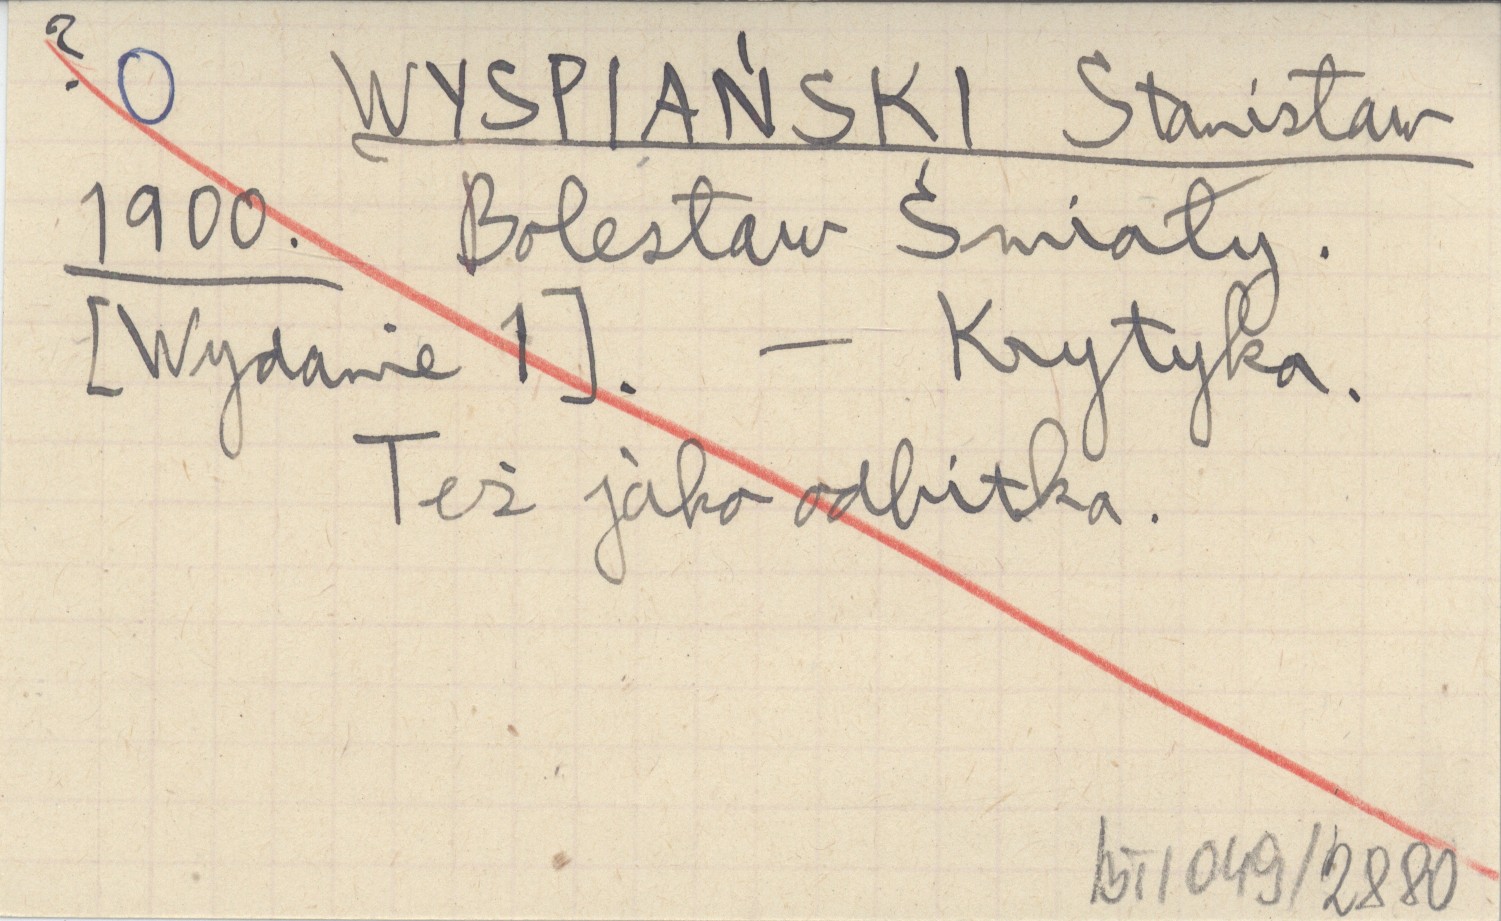 ? O WYSPIAŃSKI Stanisław
1900. Bolesław Śmiały.
[Wydanie 1]. — Krytyka.
Też jako odbitka.
049/2880